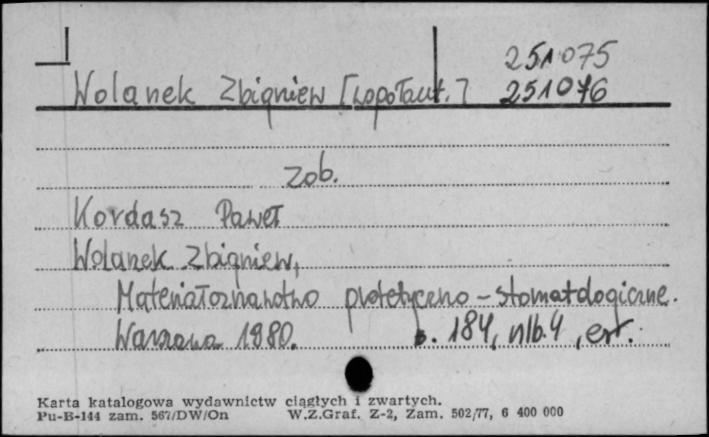 251075
Wolanek Zbigniew [współaut.] 251076
Zob.
Kordasz Paweł
Wolanek Zbigniew,
Materiałoznawstwo protetyczno-stomatologiczne.
Warszawa 1980. s. 184, nlb. 4, err.
Karta katalogowa wydawnictw ciągłych i zwartych.
Pu-B-144 zam. 567/DW/On W.Z.Graf. Z-2, Zam. 502/77, 6 400 000